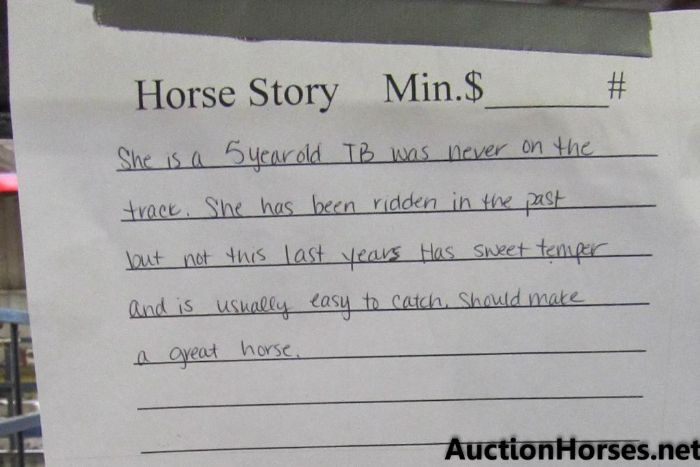 Horse Story Min.$______#
She is a 5 year old TB was never on the
track. She has been ridden in the past
but not this last years Has sweet temper
and is usually easy to catch. Should make
a great horse.
AuctionHorses.net